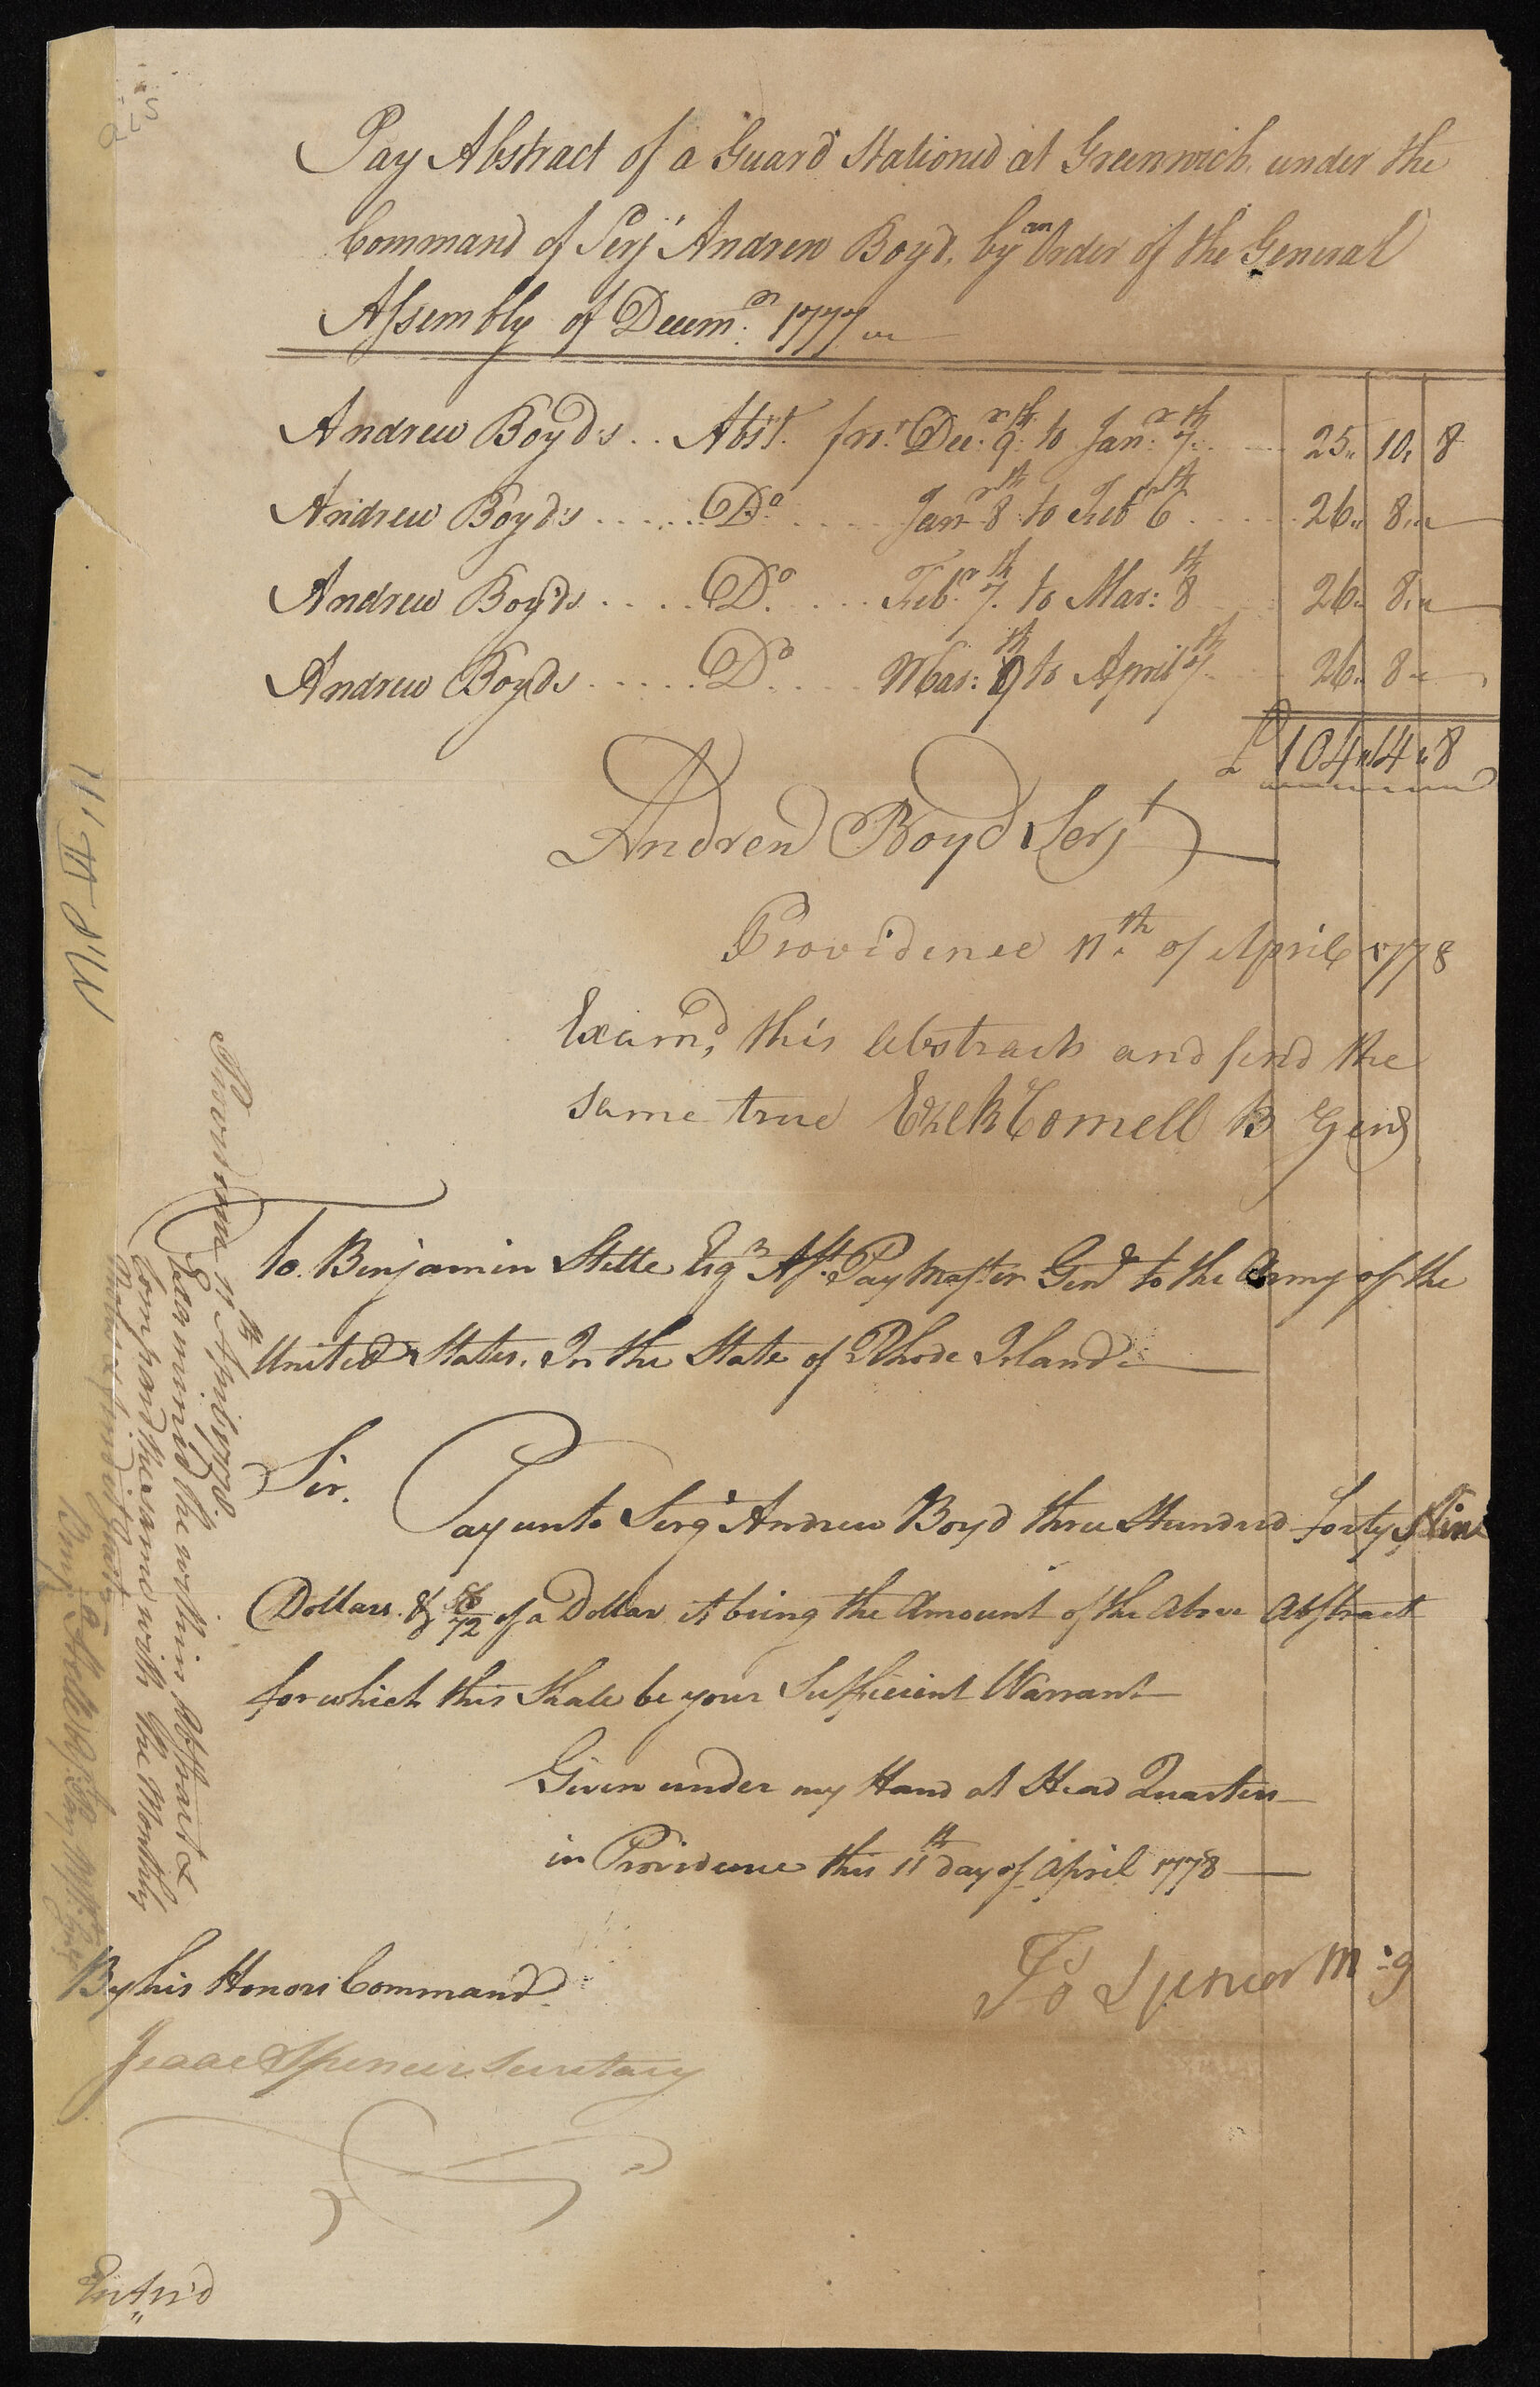 Pay Abstract of a Guard Stationed at Greenwich under the
Command of Serjt Andrew Boyd, by an Order of the General
Assembly of Decemr. 1777
Andrew Boyd's .. Abst. for Decr. 9th to Janr. 7th 25 10 8
Andrew Boyd's ...... Do .... Janr 8th to Feb 6th .... 26 8
Andrew Boyds ..... Do. .... Febr. 7th. to Mar: 8th 26 8
Andrew Boyds ..... Do .... Mar: 9th to April 7th 26 8
£ 104 14 8
Andrew Boyd Serjt
Providence 11th of April 1778
Examd, this abstract and find the
same true Ezek Cornell B Genl
To Benjamin Stelle Esqr Asst. Pay Master Genl to the Army of the
United States. In the State of Rhode Island
Sir. Pay unto Sergt Andrew Boyd three Hundred Forty Nine
Dollars & /72 of a Dollar it being the Amount of the Above Abstract
for which this Shall be your Sufficient Warrant
Given under my Hand at Head Quarters
in Providence this 11th day of April 1778
Jos Spencer M:G
By his Honors Command
Isaac Spencer Secretary
Entr'd
Providence 11th April 1778
Examined the within Abstract &
Compared the same with the Monthly
Benj Stelle